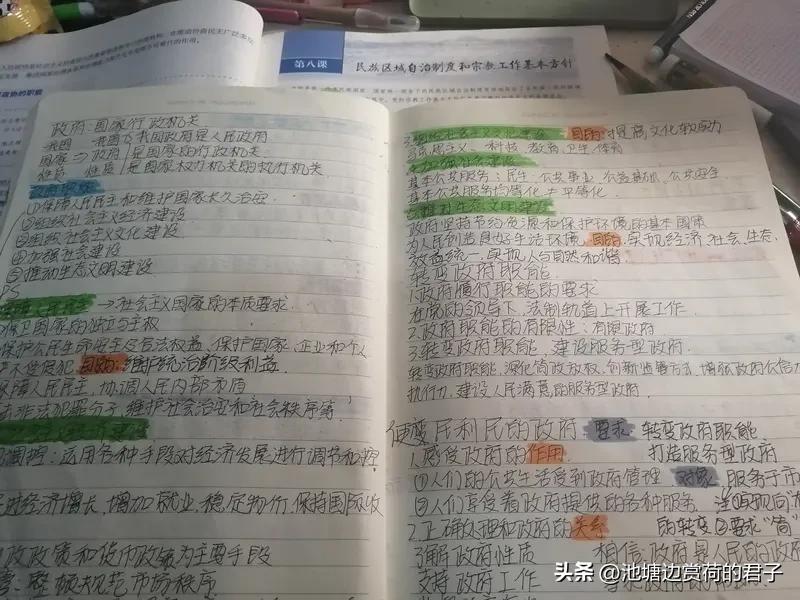 第八课
民族区域自治制度和宗教工作基本方针
政府:国家行政机关
我国政府是人民政府
国家 政府 是国家的行政机关
性质 性质 是国家权力机关的执行机关
政府职能
①保障人民民主和维护国家长久治安
②组织社会主义经济建设
③组织社会主义文化建设
④加强社会建设
⑤推动生态文明建设
PS
→社会主义国家的本质要求
保卫国家的独立与主权
保护公民生命安全及合法权益、保护国家、企业和个人
不受侵犯 目的:维护统治阶级利益
保障人民民主,协调人民内部矛盾
非法犯罪分子,维护社会治安和社会秩序等
调控:运用各种手段对经济发展进行调节和控
进经济增长,增加就业,稳定物价,保持国际收
政政策和货币政策为主要手段
整顿规范市场秩序
3.组织社会主义文化建设 目的:提高文化软实力
马克思主义、科技 教育 卫生 体育
加强社会建设
基本公共服务:民生、公共事业、公益基础、公共安全
基本公共服务均等化≠平等化
5.推动生态文明建设
政府坚持节约资源和保护环境的基本国策
为人民创造良好生活环境 目的:实现经济、社会、生态
效益统一,实现人与自然和谐
转变政府职能
1.政府履行职能的要求
在党的领导下、法制轨道上开展工作
2.政府职能的有限性:有限政府
3.转变政府职能,建设服务型政府
转变政府职能,深化简政放权,创新监管方式,增强政府公信力
执行力,建设人民满意的服务型政府.
便民利民的政府 要求 转变政府职能
1.感受政府的作用 打造服务型政府
①人们的公共生活受到政府管理 对象 服务于市
②人们享受着政府提供的各种服务
2.正确处理和政府的关系 的转变 ②要求"简"
了解政府性质 相信政府是人民的政府
支持政府工作
头条 @池塘边赏荷的君子